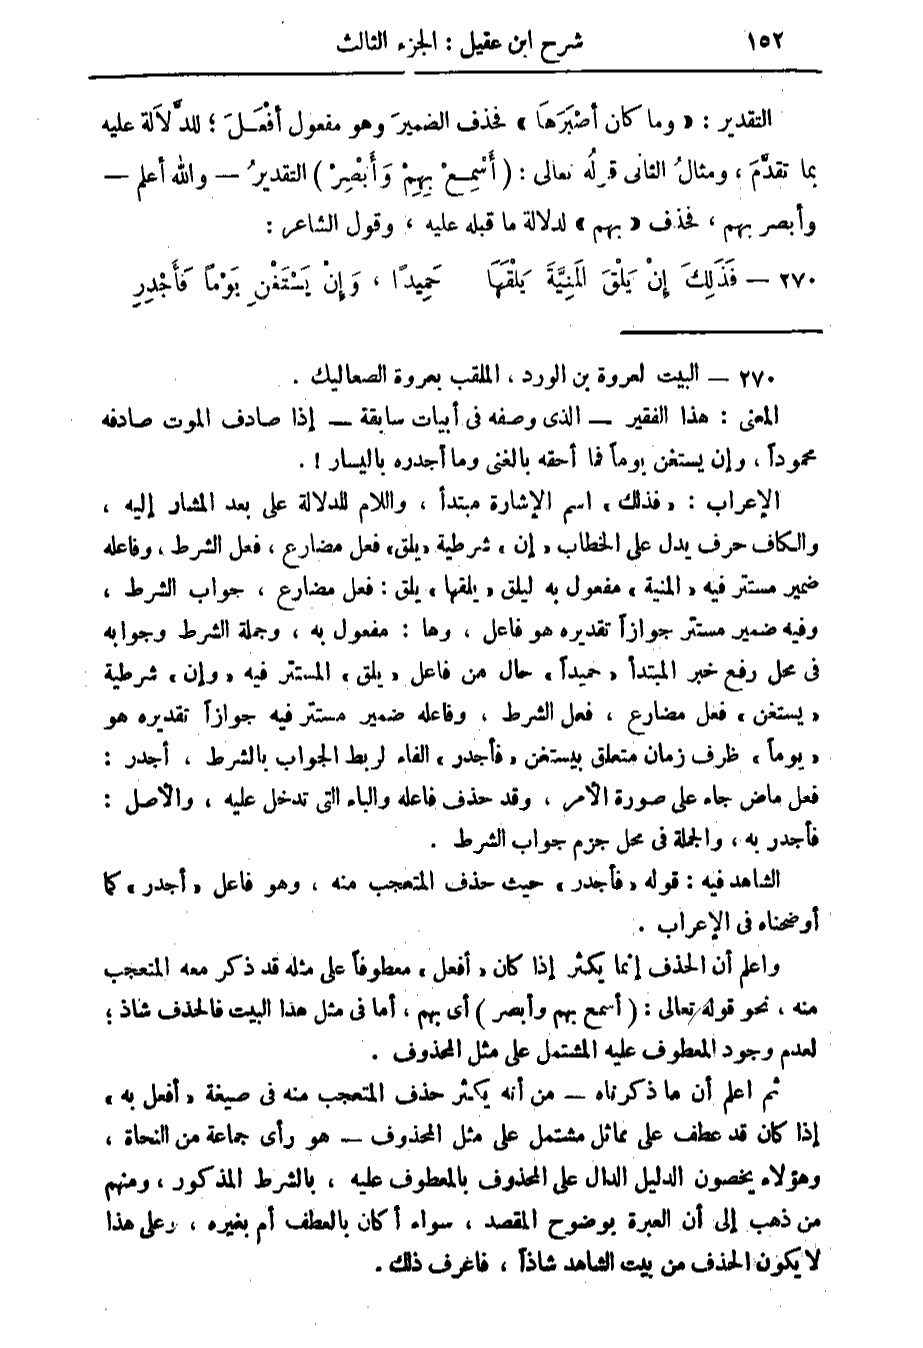 ١٥٢ شرح ابن عقيل : الجزء الثالث
التقدير : « وما كان أصْبَرَهَا » فحذف الضميرَ وهو مفعول أفْعَـلَ ؛ للدَّلاَلة عليه
بما تقدَّمَ ، ومثالُ الثانى قولُه تعالى : ( أَسْمِعْ بِهِمْ وَأَبْصِرْ ) التقديرُ — والله أعلم —
وأبصر بهم ، فحذف « بهم » لدلالة ما قبله عليه ، وقول الشاعر :
٢٧٠ — فَذَلِكَ إِنْ يَلْقَ الَمنِيَّةَ يَلْقَهَا حَمِيدًا ، وَإِنْ يَسْتَغْنِ يَوْمًا فَأَجْدِرِ
٢٧٠ — البيت لعروة بن الورد ، الملقب بعروة الصعاليك .
المعنى : هذا الفقير — الذى وصفه فى أبيات سابقة — إذا صادف الموت صادفه
محموداً ، وإن يستغن يوماً فما أحقه بالغنى وما أجدره باليسار ! .
الإعراب : « فذلك » اسم الإشارة مبتدأ ، واللام للدلالة على بعد المشار إليه ،
والكاف حرف يدل على الخطاب « إن » شرطية « يلق » فعل مضارع ، فعل الشرط ، وفاعله
ضمير مستتر فيه « المنية » مفعول به ليلق « يلقها » يلق : فعل مضارع ، جواب الشرط ،
وفيه ضمير مستتر جوازاً تقديره هو فاعل ، وها : مفعول به ، وجملة الشرط وجوابه
فى محل رفع خبر المبتدأ « حميداً » حال من فاعل « يلق » المستتر فيه « وإن » شرطية
« يستغن » فعل مضارع ، فعل الشرط ، وفاعله ضمير مستتر فيه جوازاً تقديره هو
« يوماً » ظرف زمان متعلق بيستغن « فأجدر » الفاء لربط الجواب بالشرط ، أجدر :
فعل ماض جاء على صورة الأمر ، وقد حذف فاعله والباء التى تدخل عليه ، والأصل :
فأجدر به ، والجملة فى محل جزم جواب الشرط .
الشاهد فيه : قوله « فأجدر » حيث حذف المتعجب منه ، وهو فاعل « أجدر » كما
أوضحناه فى الإعراب .
واعلم أن الحذف إنما يكثر إذا كان « أفعل » معطوفاً على مثله قد ذكر معه المتعجب
منه ، نحو قوله تعالى : ( أسمع بهم وأبصر ) أى بهم ، أما فى مثل هذا البيت فالحذف شاذ ؛
لعدم وجود المعطوف عليه المشتمل على مثل المحذوف .
ثم اعلم أن ما ذكرناه — من أنه يكثر حذف المتعجب منه فى صيغة « أفعل به »
إذا كان قد عطف على مماثل مشتمل على مثل المحذوف — هو رأى جماعة من النحاة ،
وهؤلاء يخصون الدليل الدال على المحذوف بالمعطوف عليه ، بالشرط المذكور ، ومنهم
من ذهب إلى أن العبرة بوضوح المقصد ، سواء أكان بالعطف أم بغيره ، وعلى هذا
لا يكون الحذف من بيت الشاهد شاذاً ، فاعرف ذلك .